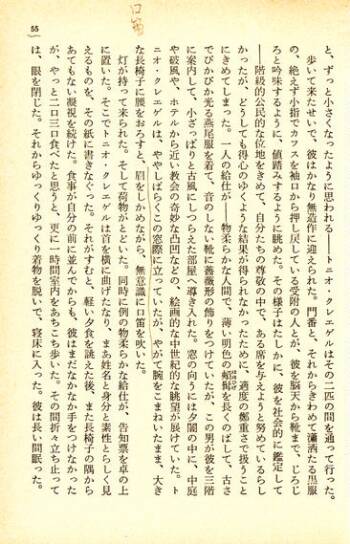 55
口笛
と、ずっと小さくなったように思われる――トニオ・クレエゲルはその二匹の間を通って行った。
歩いて来たせいで、彼はかなり無造作に迎えられた。門番と、それからきわめて瀟洒たる黒服
の、絶えず小指でカフスを袖口から押し戻している受附の人とが、彼を脳天から靴まで、じろじ
ろと吟味するように、値踏みするように眺めた。その様子はたしかに、彼を社会的に鑑定して
――階級的公民的な位地をきめて、自分たちの尊敬の中で、ある席を与えようと努めているらし
かったが、どうしても得心のゆくような結果が得られなかったために、適度の鄭重さで扱うこと
にきめてしまった。一人の給仕が――物柔らかな人間で、薄い明色の頰髯を長くのばして、古さ
でぴかぴか光る燕尾服を着て、音のしない靴に薔薇形の飾りをつけていたが、この男が彼を三階
に案内して、小ざっぱりと古風にしつらえた部屋へ導き入れた。窓の向うには夕闇の中に、中庭
や破風や、ホテルから近い教会の奇妙な凸凹などの、絵画的な中世紀的な眺望が展けていた。ト
ニオ・クレエゲルは、ややしばらくこの窓際に立っていたが、やがて腕をこまねいたまま、大き
な長椅子に腰をおろすと、眉をしかめながら、無意識に口笛を吹いた。
灯が持って来られた。そして荷物がとどいた。同時に例の物柔らかな給仕が、告知票を卓の上
に置いた。そこでトニオ・クレエゲルは首を横に曲げたなり、まあ姓名と身分と素性とらしく見
えるものを、その紙に書きなぐった。それがすむと、軽い夕食を誂えた後、また長椅子の隅から
あてもない凝視を続けた。食事が自分の前に並んでからも、彼はまだなかなか手をつけなかった
が、やっと二口三口食べたと思うと、更に一時間室内をあちこち歩いた。その間折々立ち止って
は、眼を閉じた。それからゆっくりゆっくり着物を脱いで、寝床に入った。彼は長い間眠った。